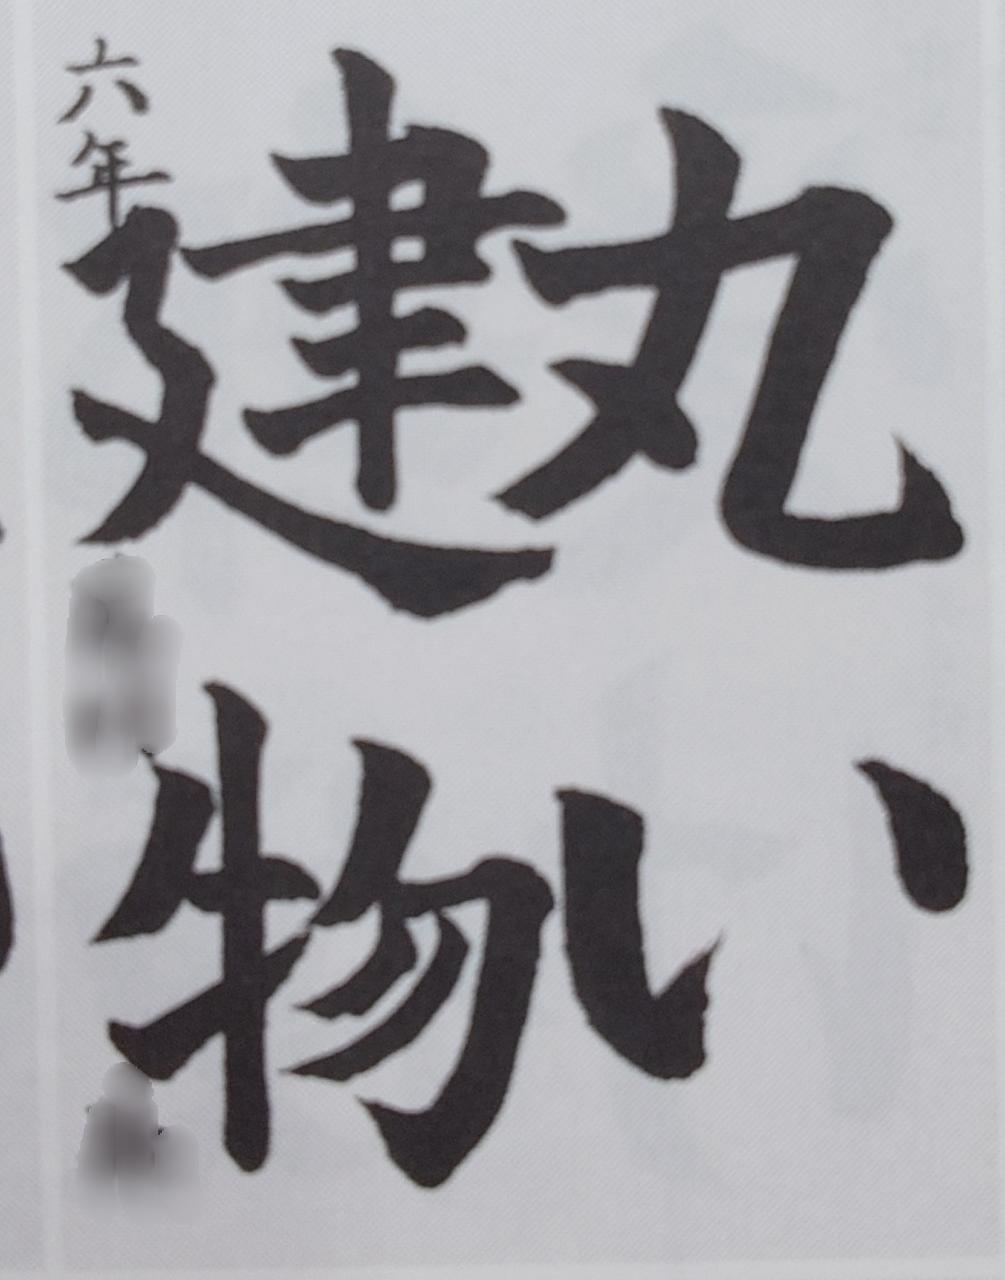 丸い
建物
六年